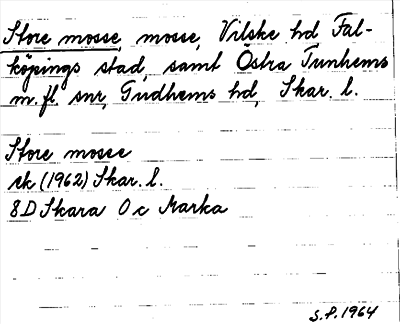 Store mosse, mosse, Vilske hd Fal-
köpings stad, samt Östra Tunhems
m.fl. snr, Gudhems hd, Skar. l.
Store mosse
ek (1962) Skar. l.
8D Skara 0 c Marka
S.P. 1964